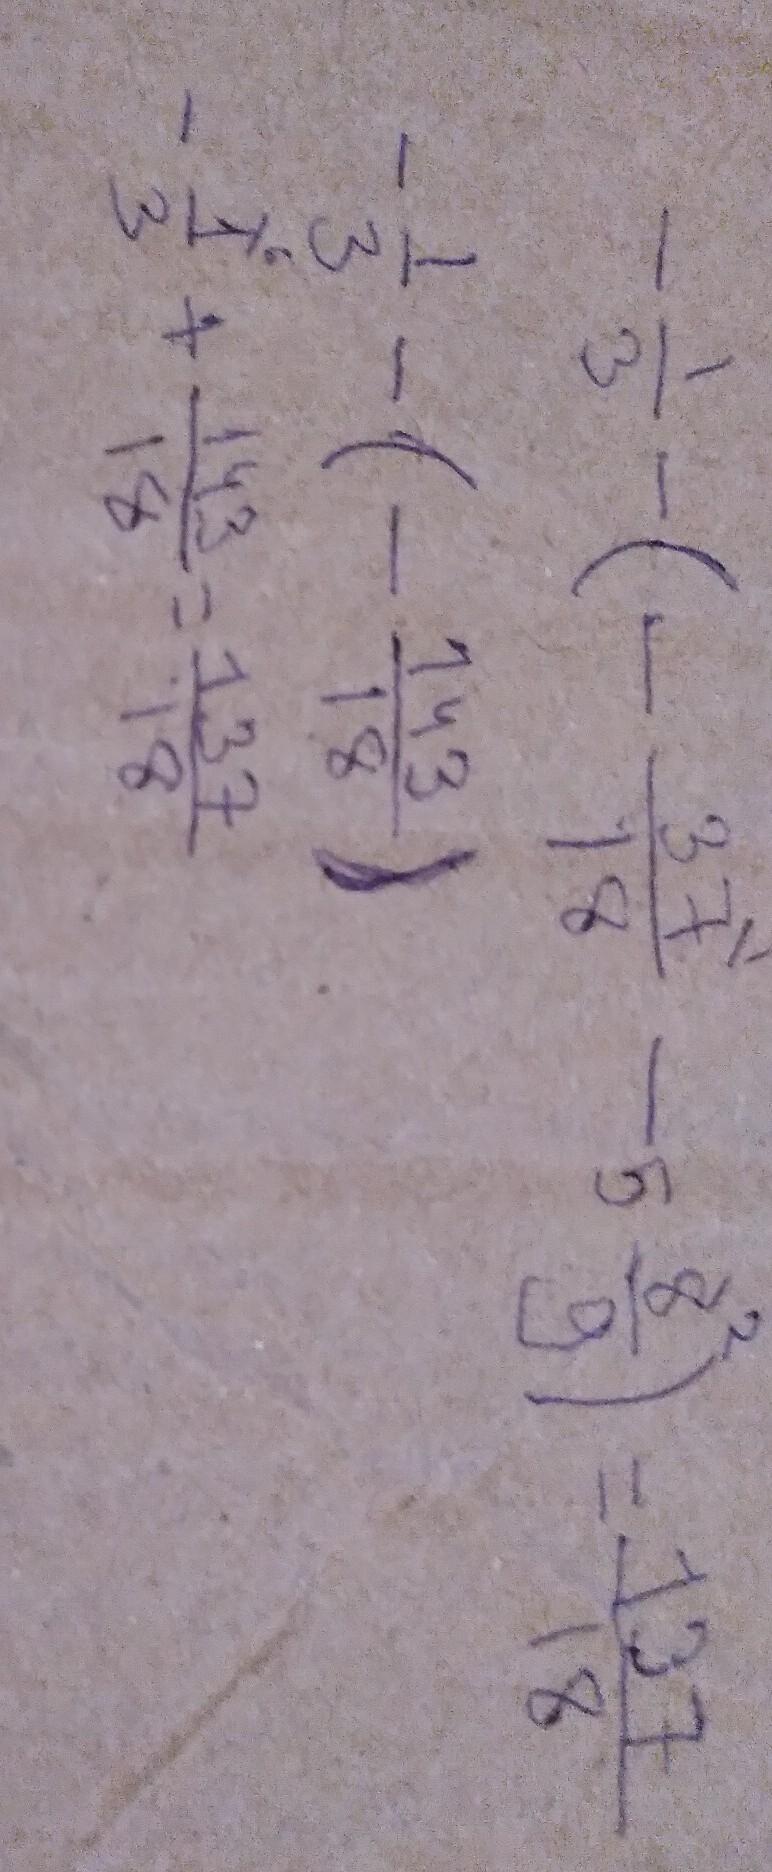 -1/3 - (- 37/18 - 5 8/9) = 137/18
-1/3 - (- 143/18)
-1/3 + 143/18 = 137/18